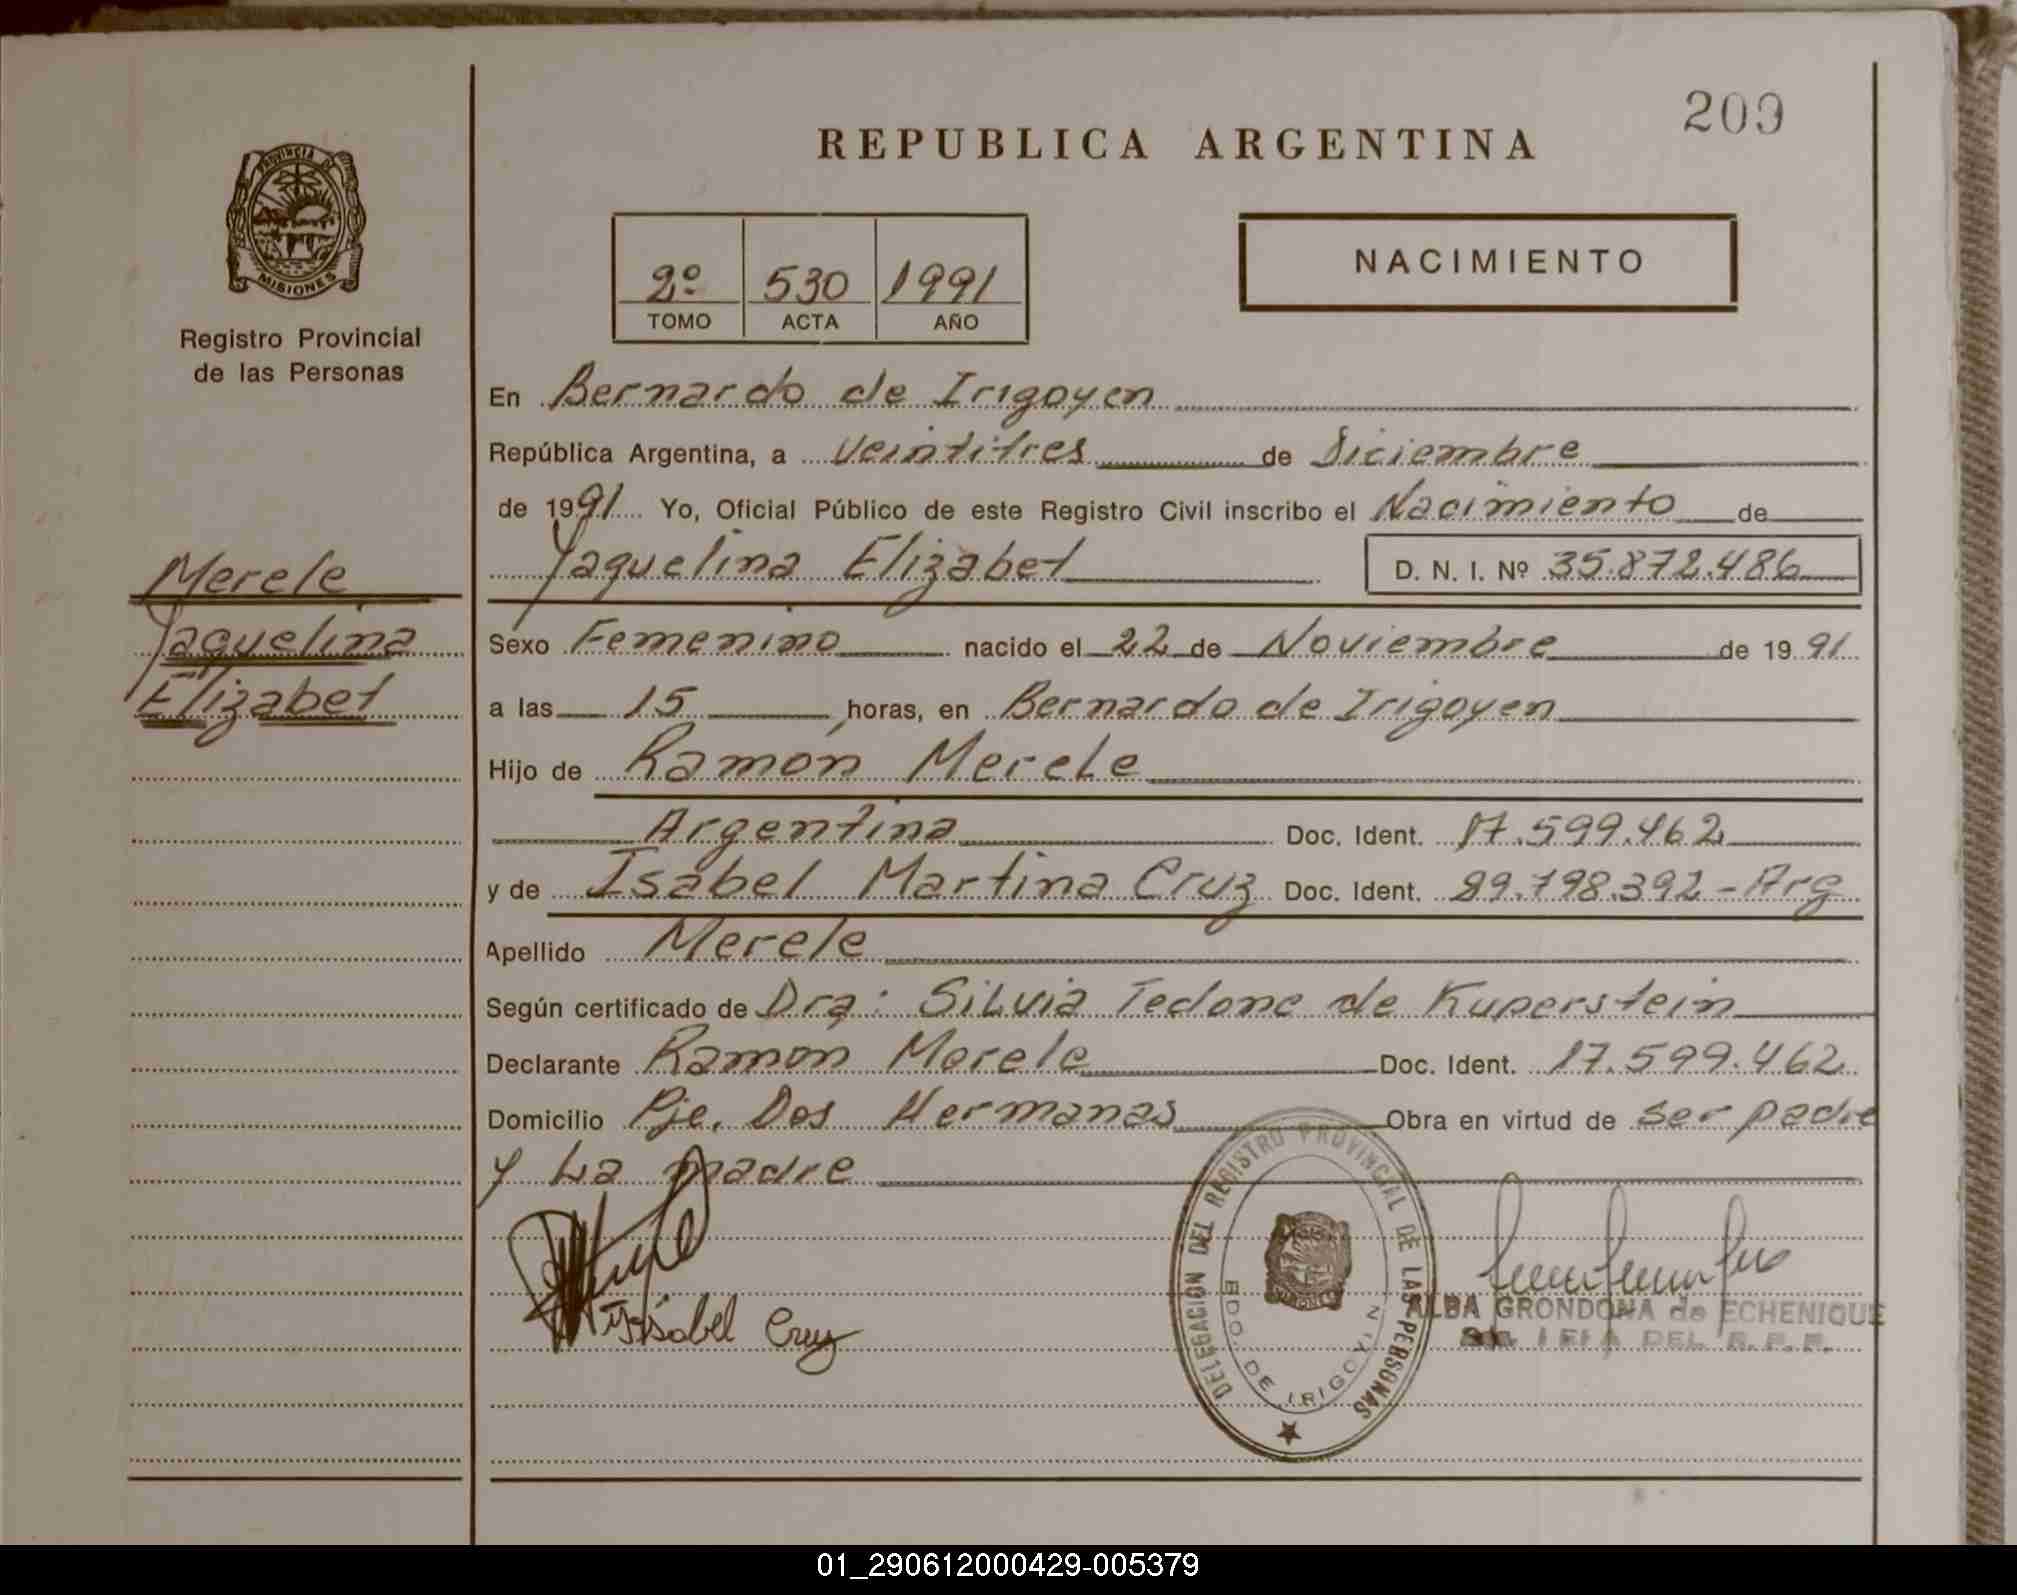 209
REPUBLICA ARGENTINA
PROVINCIA DE
MISIONES
Registro Provincial
de las Personas
2º 530 1991
TOMO ACTA AÑO
NACIMIENTO
En Bernardo de Irigoyen
República Argentina, a veintitres de Diciembre
de 1991 Yo, Oficial Público de este Registro Civil inscribo el Nacimiento de
Yaquelina Elizabet D. N. I. Nº 35.872.486
Merele
Yaquelina
Elizabet
Sexo Femenino nacido el 22 de Noviembre de 1991
a las 15 horas, en Bernardo de Irigoyen
Hijo de Ramón Merele
Argentina Doc. Ident. 17.599.462
y de Isabel Martina Cruz Doc. Ident. 29.798.392-Arg
Apellido Merele
Según certificado de Dra: Silvia Tedone de Kuperstein
Declarante Ramón Merele Doc. Ident. 17.599.462
Domicilio Pje. Dos Hermanas Obra en virtud de ser padre
y La madre
Isabel Cruz
DELEGACION DEL REGISTRO PROVINCIAL DE LAS PERSONAS
BDO. DE IRIGOYEN
ALBA GRONDONA de ECHENIQUE
DEL R. P. P.
01_290612000429-005379